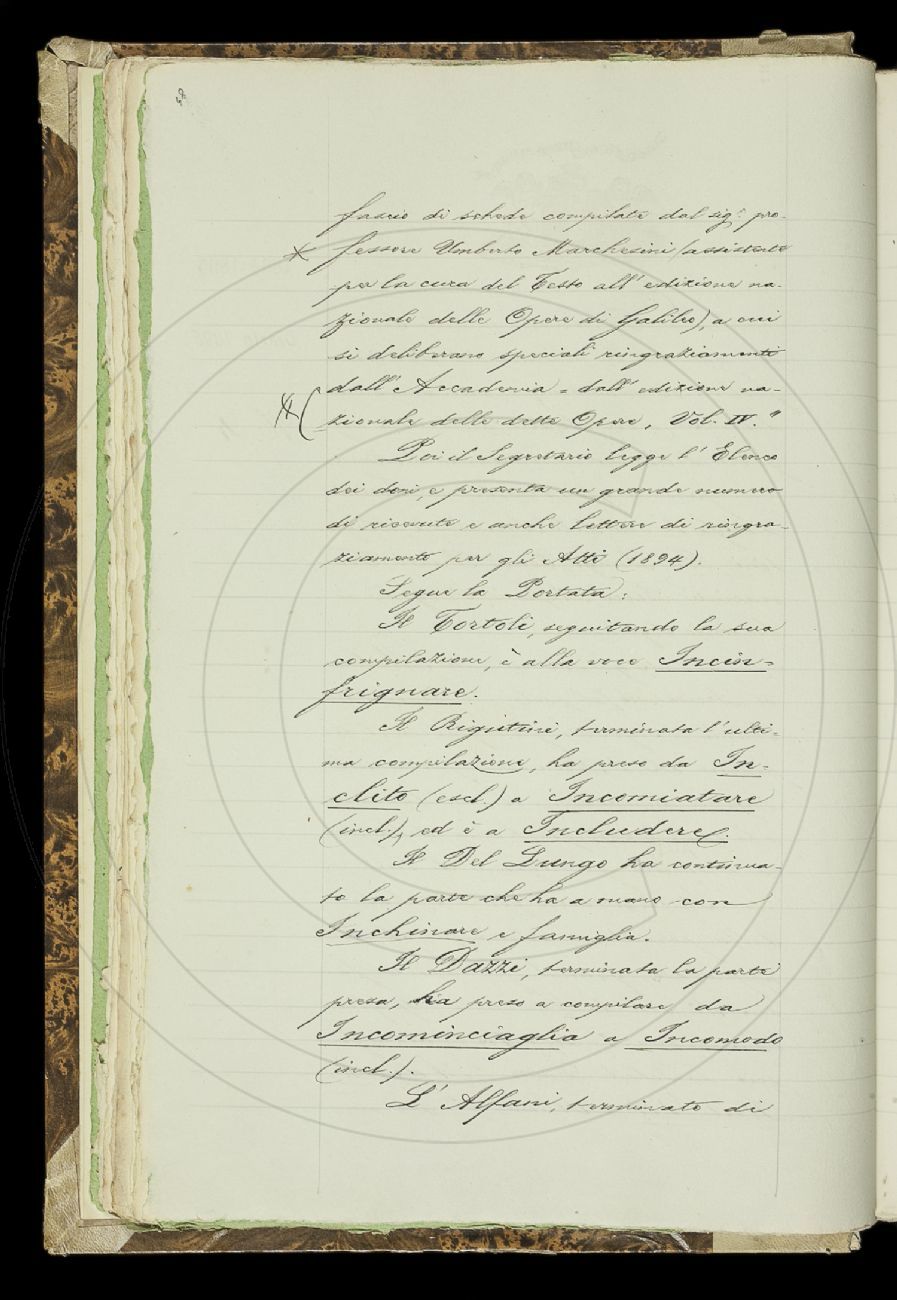 fascio di schede compilate dal sig.r pro-
fessore Umberto Marchesini (assistente
per la cura del Testo all'edizione na-
zionale delle Opere di Galileo), a cui
si deliberano speciali ringraziamenti
dall'Accademia = dall'edizione na-
zionale delle dette Opere, Vol. IV."
Poi il Segretario legge l'Elenco
dei doni e presenta un grande numero
di ricevute e anche lettere di ringra-
ziamento per gli Atti (1894).
Segue la Portata:
Il Tortoli, seguitando la sua
compilazione, è alla voce Incin=
frignare.
Il Rigutini, terminata l'ulti-
ma compilazione, ha preso da In-
clito (escl.) a Incomiatare
(incl.), ed è a Includere.
Il Del Lungo ha continua-
to la parte che ha a mano con
Inchinare e famiglia.
Il Dazzi, terminata la parte
presa, ha preso a compilare da
Incominciaglia a Incomodo
(incl.).
L'Alfani, terminato di